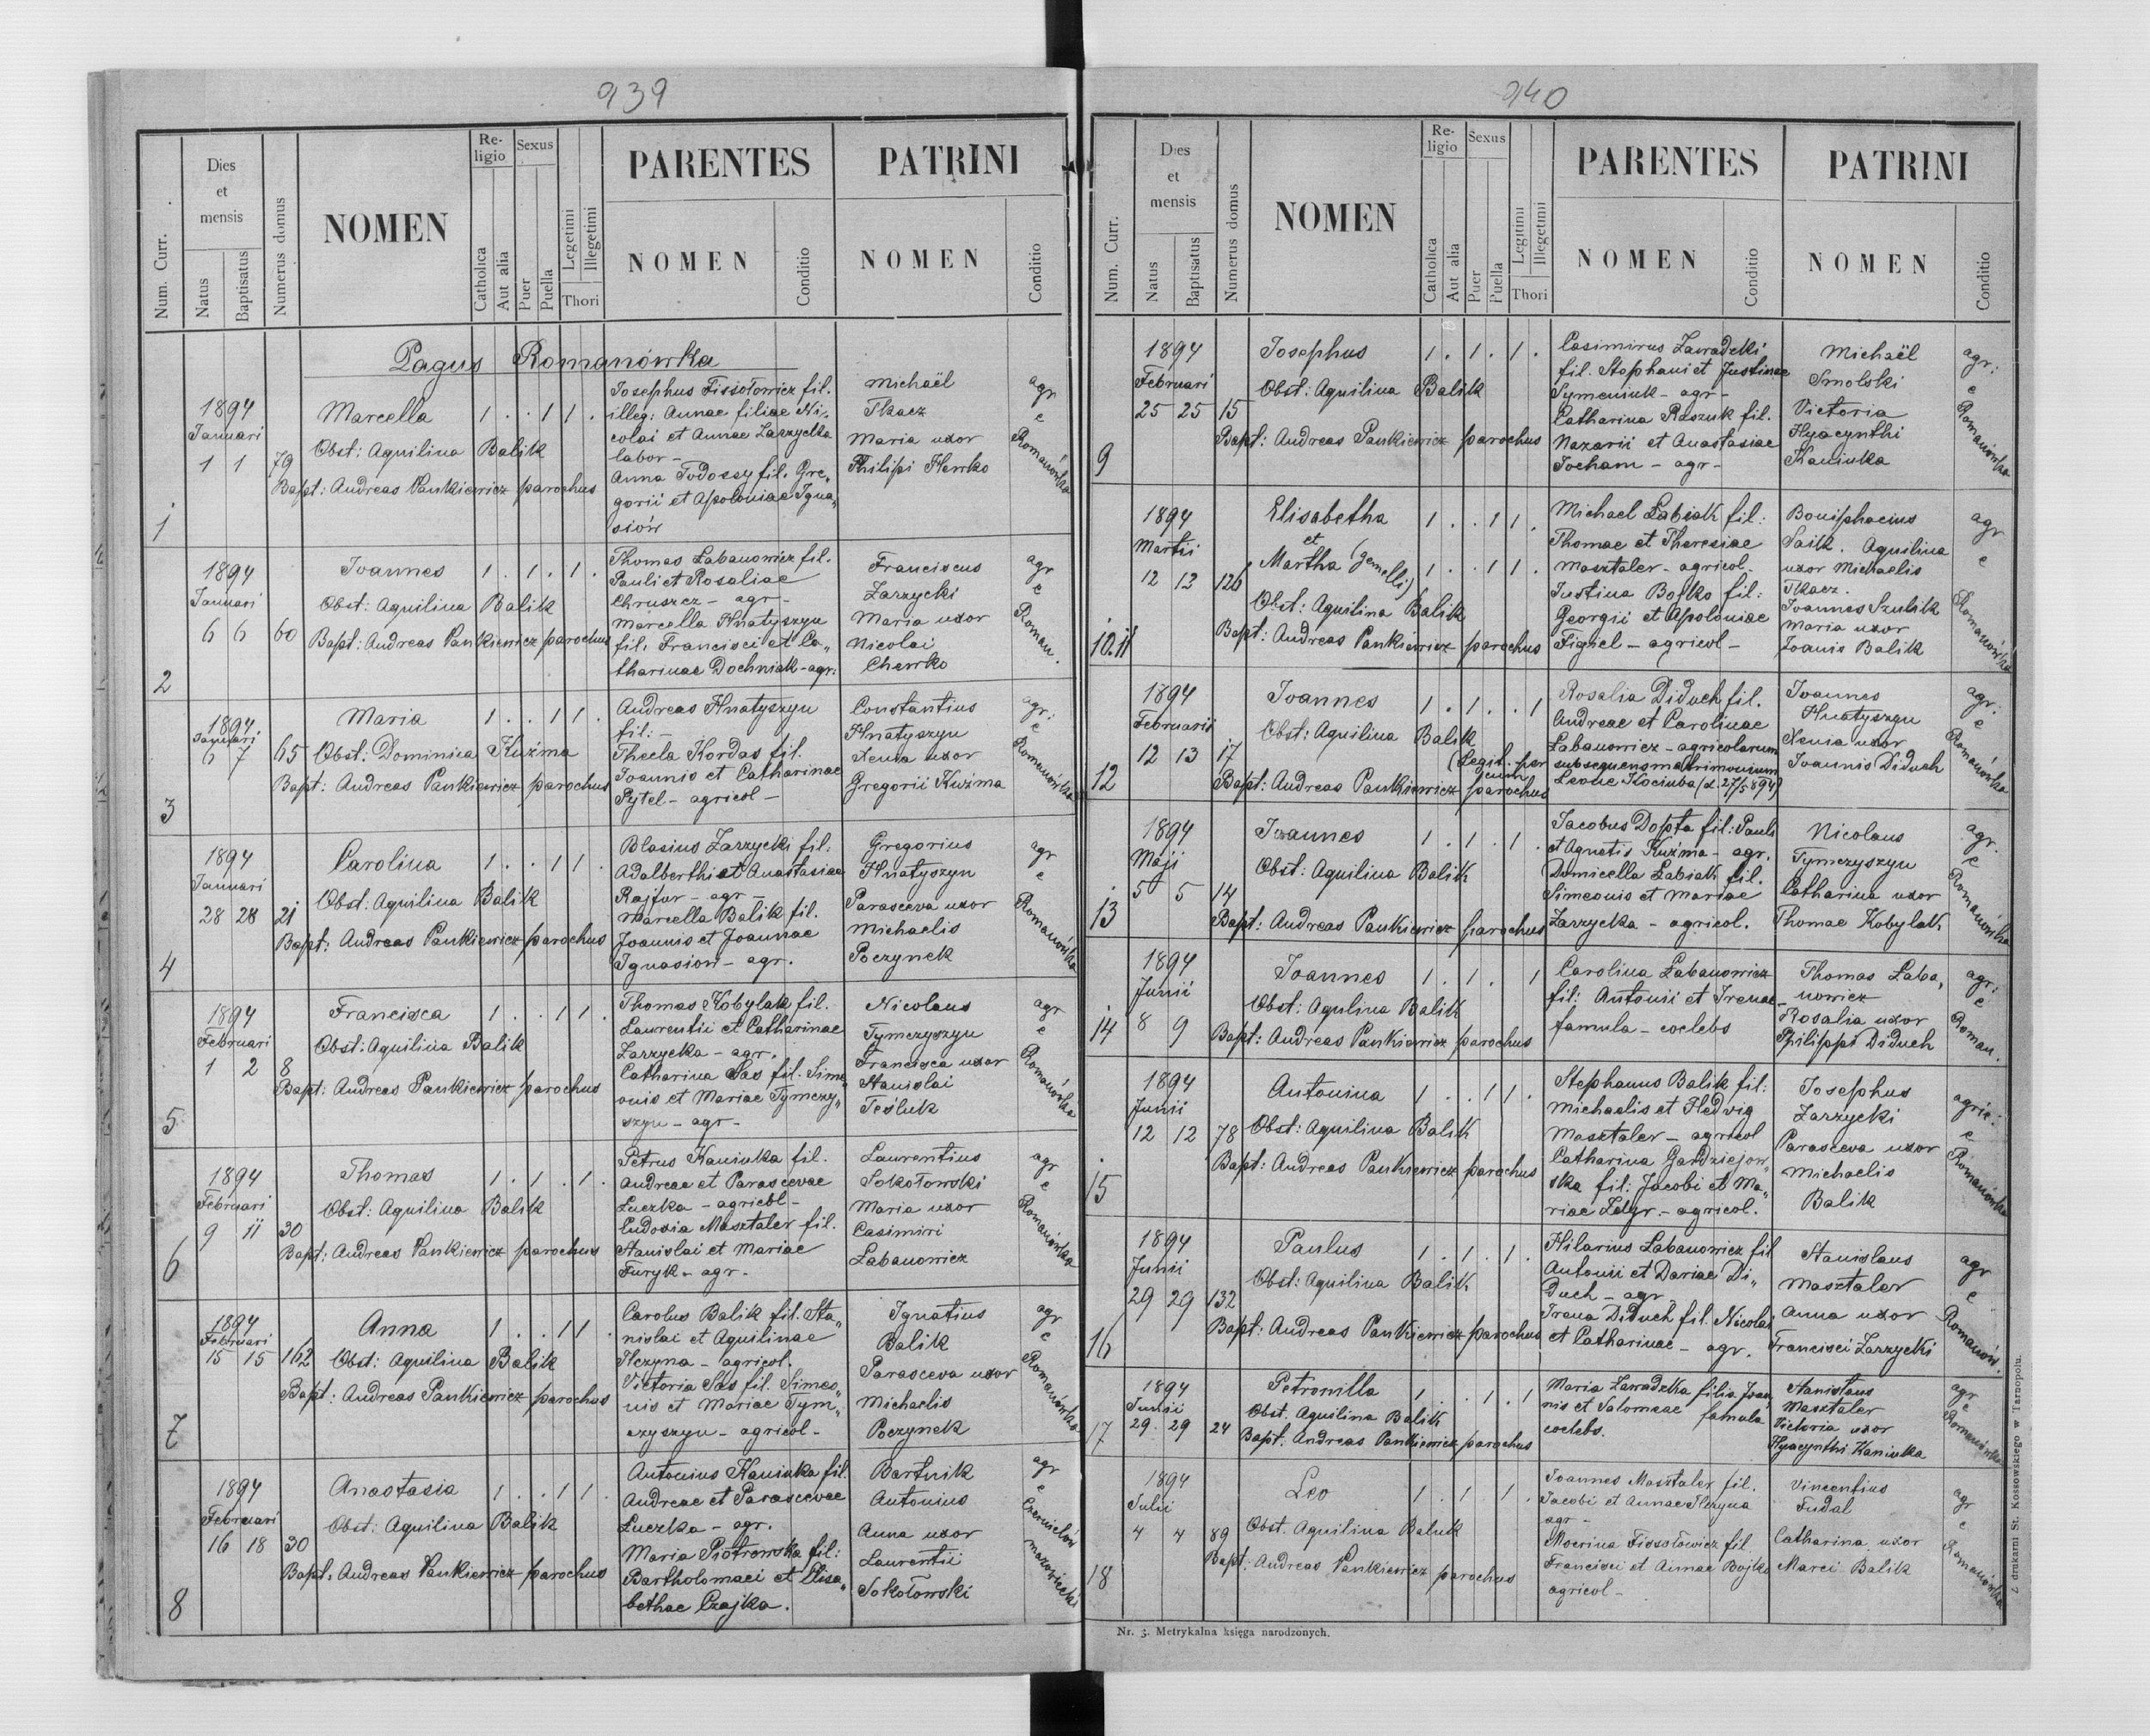 939
Num. Curr.
Dies et mensis
Natus
Baptisatus
Numerus domus
NOMEN
Religio
Catholica
Aut alia
Sexus
Puer
Puella
Legetimi
Illegetimi
Thori
PARENTES
NOMEN
Conditio
PATRINI
NOMEN
Conditio
Pagus Romanówka
1
1894
Januari
1 1 79
Marcella
1 . . 1 1 .
Obst: Aquilina Balik
Bapt: Andreas Pankiewicz parochus
Josephus Fissołowicz fil.
illeg: Annae filiae Ni-
colai et Annae Zarzycka
labor-
Anna Todossy fil. Gre„
gorii et Apoloniae Igna„
siów
Michaël
Tkacz
Maria uxor
Philipi Hewko
agr
e
Romanówka
2
1894
Januari
6 6 60
Joannes
1 . 1 . 1 .
Obst: Aquilina Balik
Bapt: Andreas Pankiewicz parochus
Thomas Łabanowicz fil.
Pauli et Rosaliae
Chruszcz - agr -
Marcella Hnatyszyn
fil. Francisci et Ca„
tharinae Dochniak - agr:
Franciscus
Zarzycki
Maria uxor
Nicolai
Chewko
agr
e
Roman.
3
1894
Januari
6 7 65
Maria
1 . . 1 1 .
Obst: Dominica Kuźma
Bapt: Andreas Pankiewicz parochus
Andreas Hnatyszyn
fil: -
Thecla Hordas fil.
Joannis et Catharinae
Pytel - agricol -
Constantius
Hnatyszyn
Xenia uxor
Gregorii Kuźma
agr:
e
Romanówka
4
1894
Januari
28 28 21
Carolina
1 . . 1 1 .
Obst: Aquilina Balik
Bapt: Andreas Pankiewicz parochus
Blasius Zarzycki fil:
Adalberthi et Anastasiae
Rajfur - agr -
Marcella Balik fil.
Joannis et Joannae
Ignasion - agr.
Gregorius
Hnatyszyn
Parasceva uxor
Michaelis
Poczynek
agr
e
Romanówka
5
1894
Februari
1 2 8
Francisca
1 . . 1 1 .
Obst: Aquilina Balik
Bapt: Andreas Pankiewicz parochus
Thomas Kobylak fil.
Laurentii et Catharinae
Zarzycka - agr.
Catharina Sas fil. Sime„
onis et Mariae Tymczy„
szyn - agr -
Nicolaus
Tymczyszyn
Francisca uxor
Stanislai
Teśluk
agr
e
Romanówka
6
1894
Februari
9 11 30
Thomas
1 . 1 . 1 .
Obst: Aquilina Balik
Bapt: Andreas Pankiewicz parochus
Petrus Kaniuka fil.
Andreae et Parascevae
Łuczka - agricol -
Eudoxia Masztaler fil.
Stanislai et Mariae
Furyk - agr -
Laurentius
Sokołowski
Maria uxor
Casimiri
Łabanowicz
agr
e
Romanówka
7
1894
Februari
15 15 162
Anna
1 . . 1 1 .
Obst: Aquilina Balik
Bapt: Andreas Pankiewicz parochus
Carolus Balik fil. Sta„
nislai et Aquilinae
Hczyna - agricol.
Victoria Sas fil. Simeo„
nis et Mariae Tym„
czyszyn - agricol -
Ignatius
Balik
Parasceva uxor
Michaelis
Poczynek
agr
e
Romanówka
8
1894
Februari
16 18 30
Anastasia
1 . . 1 1 .
Obst: Aquilina Balik
Bapt: Andreas Pankiewicz parochus
Antonius Kaniuka fil.
Andreae et Parascevae
Łuczka - agr.
Maria Piotrowska fil:
Bartholomaei et Elisa„
bethae Czajka.
Bartnik
Antonius
Anna uxor
Laurentii
Sokołowski
agr
e
Czernielów
mazowiecki
940
Num. Curr.
Dies et mensis
Natus
Baptisatus
Numerus domus
NOMEN
Religio
Catholica
Aut alia
Sexus
Puer
Puella
Legitimi
Illegetimi
Thori
PARENTES
NOMEN
Conditio
PATRINI
NOMEN
Conditio
9
1894
Februari
25 25 15
Josephus
1 . 1 . 1 .
Obst: Aquilina Balik
Bapt: Andreas Pankiewicz parochus
Casimirus Zawadzki
fil. Stephani et Justinae
Symeniuk - agr -
Catharina Raszuk fil.
Nazarii et Anastasiae
Jocham - agr -
Michaël
Smolski
Victoria
Hyacynthi
Kaniuka
agr:
e
Romanówka
10.11
1894
Martii
12 13 126
Elisabetha
1 . . 1 1 .
et
Martha (gemelli)
1 . . 1 1 .
Obst: Aquilina Balik
Bapt: Andreas Pankiewicz parochus
Michael Łabiak fil:
Thomae et Theresiae
Masztaler - agricol -
Justina Bojko fil:
Georgii et Apoloniae
Figiel - agricol -
Boniphacius
Saik. Aquilina
uxor Michaelis
Tkacz.
Joannes Szulik
Maria uxor
Joanis Balik
agr
e
Romanówka
12
1894
Februarii
12 13 17
Joannes
1 . 1 . . 1
Obst: Aquilina Balik
(Legit. per
Bapt: Andreas Pankiewicz parochus
Rosalia Diduch fil.
Andreae et Carolinae
Łabanowicz - agricolarum
subsequens matrimonium
cum Leone Kociuba (d. 27/5 894)
Joannes
Hnatyszyn
Xenia uxor
Joannis Diduch
agr:
e
Romanówka
13
1894
Maji
5 5 14
Joannes
1 . 1 . 1 .
Obst: Aquilina Balik
Bapt: Andreas Pankiewicz parochus
Jacobus Dopta fil: Pauli
et Agnetis Kuźma - agr.
Domicella Łabiak fil.
Simeonis et Mariae
Zarzycka - agricol.
Nicolaus
Tymczyszyn
Catharina uxor
Thomae Kobylak
agr.
e
Romanówka
14
1894
Junii
8 9
Joannes
1 . 1 . 1
Obst: Aquilina Balik
Bapt: Andreas Pankiewicz parochus
Carolina Łabanowicz
fil: Antonii et Irenae
famula - coelebs
Thomas Łaba„
nowicz
Rosalia uxor
Philippi Diduch
agr:
e
Roman.
15
1894
Junii
12 12 78
Antonina
1 . . 1 1 .
Obst: Aquilina Balik
Bapt: Andreas Pankiewicz parochus
Stephanus Balik fil:
Michaelis et Hedvig
Masztaler - agricol
Catharina Gardziejow„
ska fil: Jacobi et Ma„
riae Zdyr. - agricol.
Josephus
Zarzycki
Parasceva uxor
Michaelis
Balik
agric:
e
Romanówka
16
1894
Junii
29 29 132
Paulus
1 . 1 . 1 .
Obst: Aquilina Balik
Bapt: Andreas Pankiewicz parochus
Hilarius Łabanowicz fil
Antonii et Dariae Di„
duch - agr
Irena Diduch fil. Nicolai
et Catharinae - agr.
Stanislaus
Masztaler
Anna uxor
Francisci Zarzycki
agr
e
Romanów.
17
1894
Junii
29. 29 24
Petronilla
1 . . 1 . 1
Obst. Aquilina Balik
Bapt. Andreas Pankiewicz parochus
Maria Zawadzka filia Joan„
nis et Salomeae famula
coelebs.
Stanislaus
Masztaler
Victoria uxor
Hyacynthi Kaniuka
agr
e
Romanówka
18
1894
Julii
4 4 89
Leo
1 . 1 1 .
Obst. Aquilina Baluk
Bapt: Andreas Pankiewicz parochus
Joannes Masztaler fil.
Jacobi et Annae Hczyna
agr -
Macrina Fissołowicz fil
Francisci et Annae Bojko
agricol -
Vincentius
Fudal
Catharina uxor
Marci Balik
agr
e
Romanówka
Nr. 3. Metrykalna księga narodzonych.
Z drukarni St. Kossowskiego w Tarnopolu.